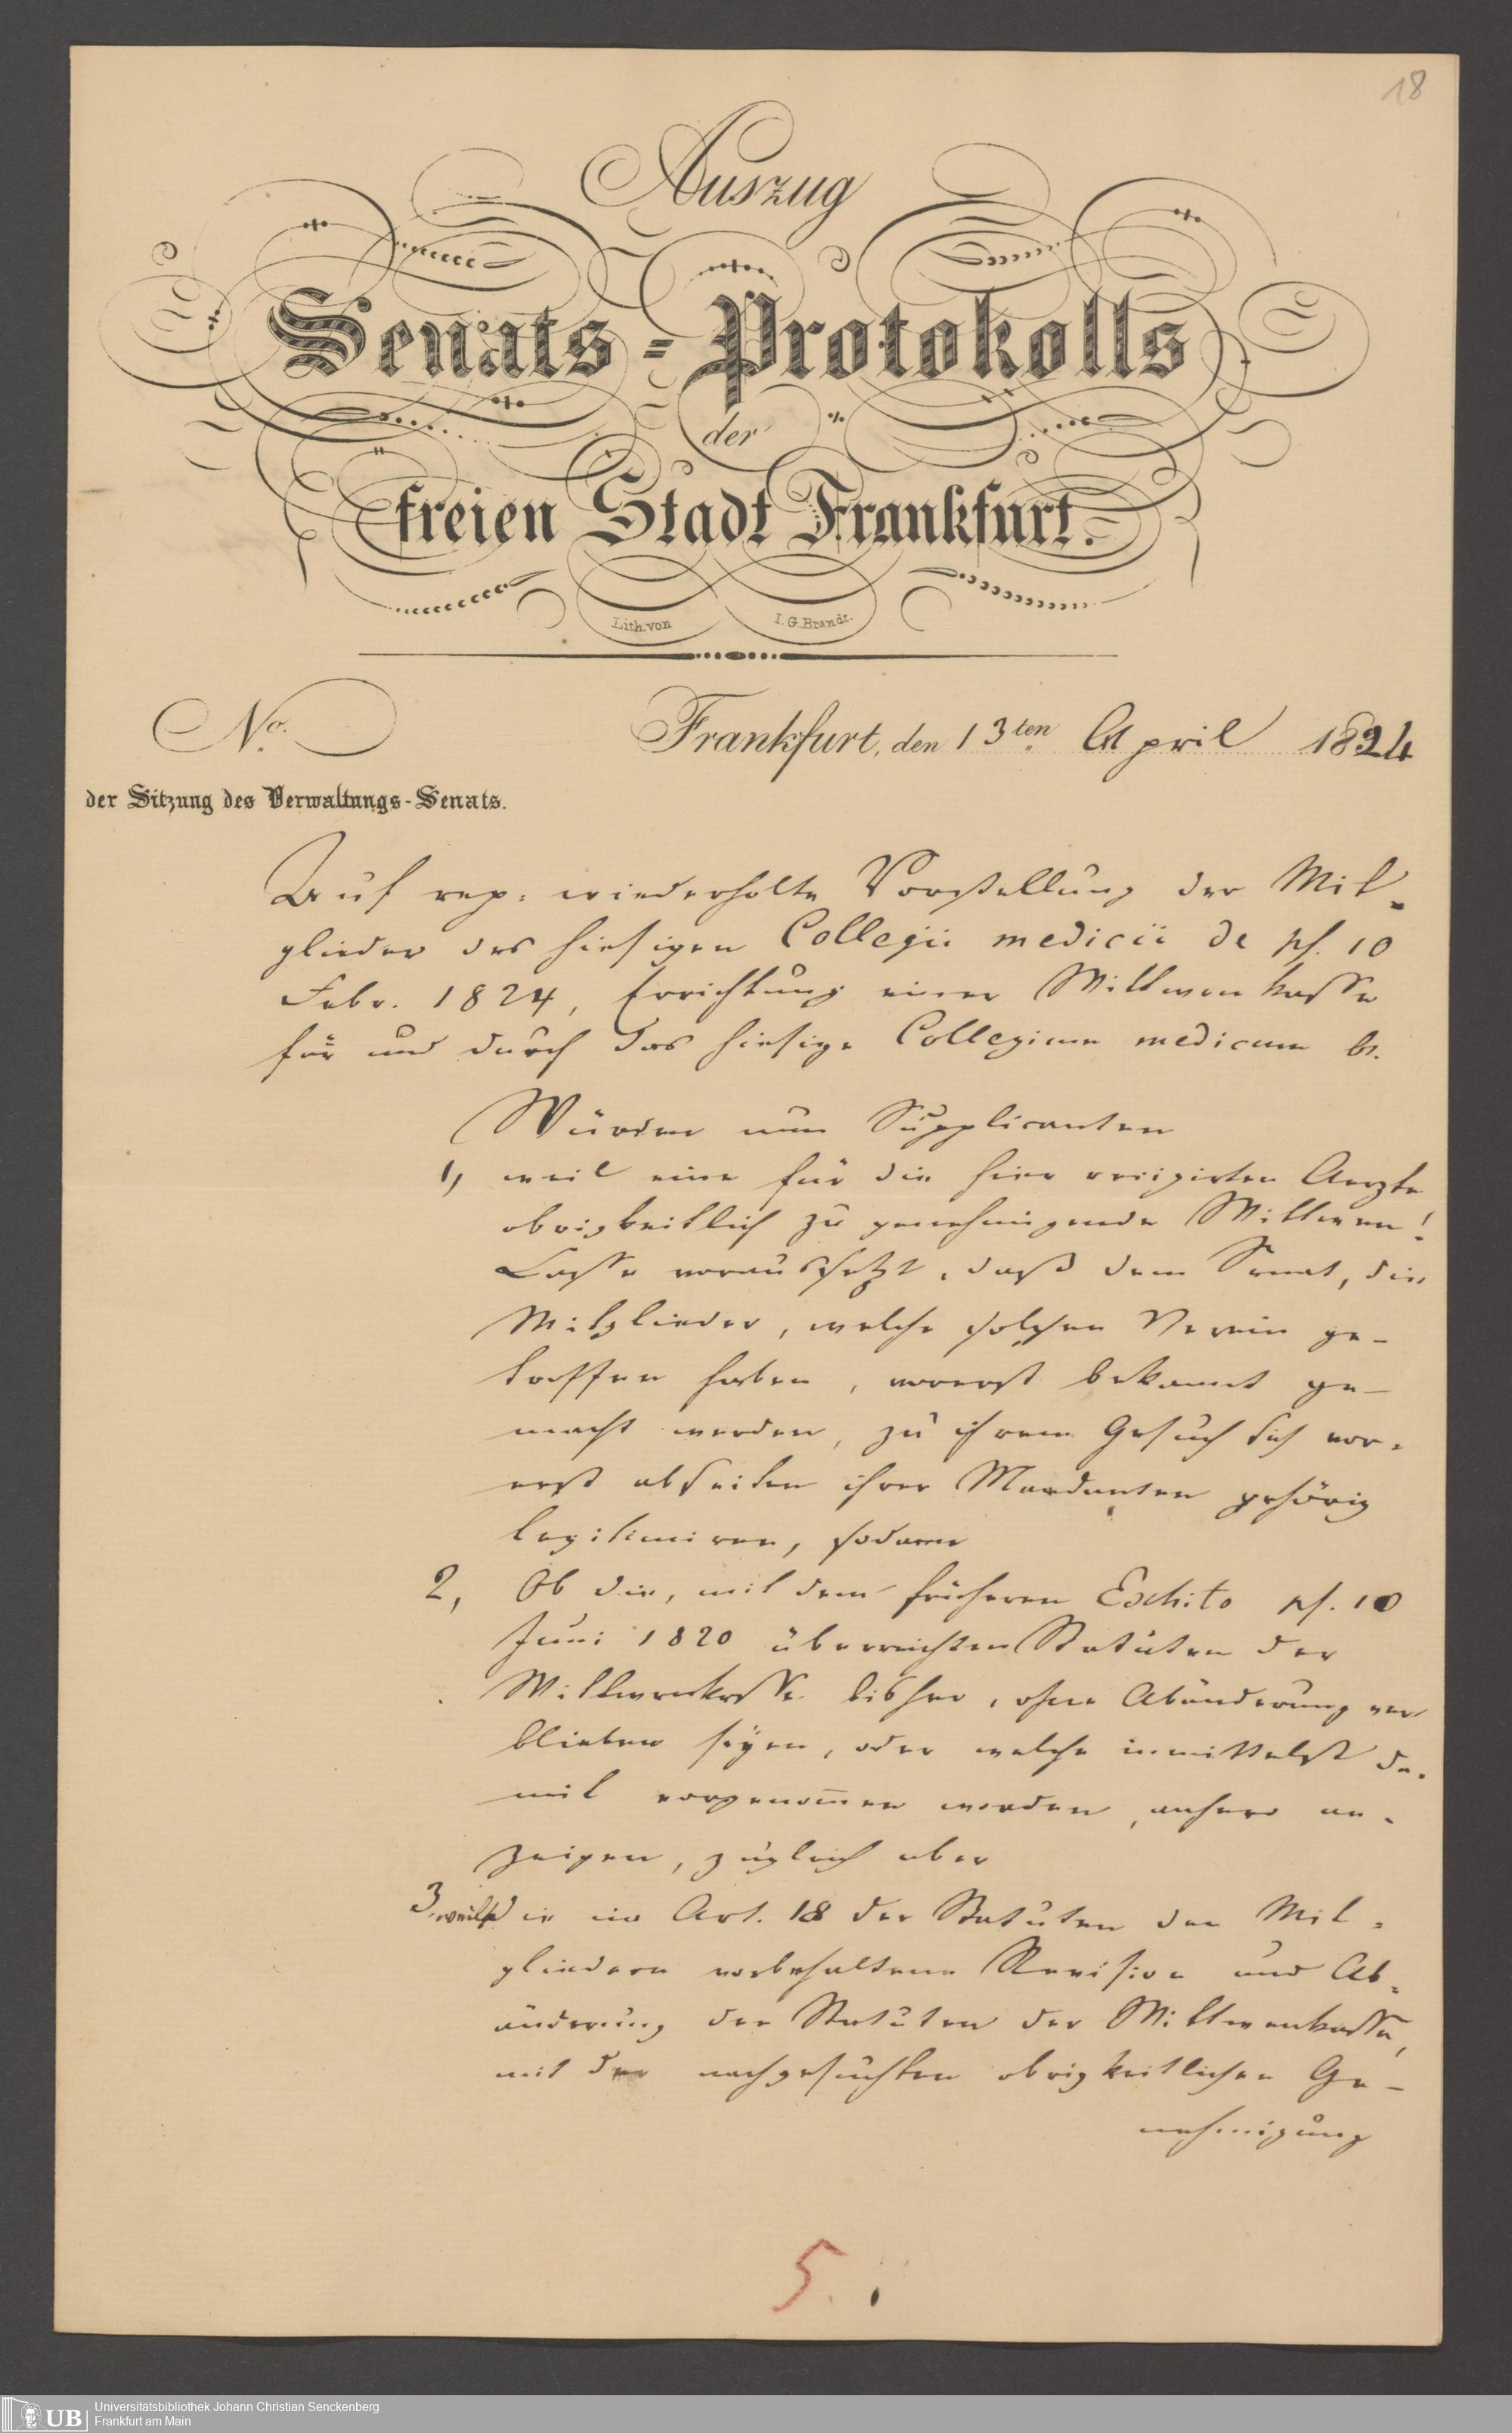 18
Auszug
Senats-Protokolls
der
freien Stadt Frankfurt.
Lith. von I. G. Brandt.
No. Frankfurt, den 13ten April 1824
der Sitzung des Verwaltungs-Senats.
Auf rep: wiederholte Vorstellung der Mit-
glieder des hiesigen Collegii medicii de ps. 10
Febr. 1824, Errichtung einer Wittwen kasse
für und durch das hiesige Collegium medicum
Würden nun Supplicanten
1, weil eine für die hier recipirten Aerzte
obrigkeitlich zu genehmigende Wittwen-
Casse voraussetzt, daß dem Senat, die
Mitglieder, welche solchen Verein ge-
troffen haben, vorerst bekannt ge-
macht werden, zu ihrem Gesuch sich vor-
erst abseiten ihrer Mandanten gehörig
legitimiren, sodann
2, Ob die, mit dem früheren Exhito ps. 10
Juni 1820 überreichten Statuten der
Wittwenkasse bisher, ohne Abänderung ver
blieben seyen, oder welche inmittelst da-
mit vorgenom̅en worden, anhero an-
zeigen, zugleich aber
3, weil die im Art. 18 der Statuten den Mit-
gliedern vorbehaltene Revision und Ab-
änderung der Statuten der Wittwenkasse,
mit der nachgesuchten obrigkeitlichen Ge-
nehmigung
5.
UB
Universitätsbibliothek Johann Christian Senckenberg
Frankfurt am Main